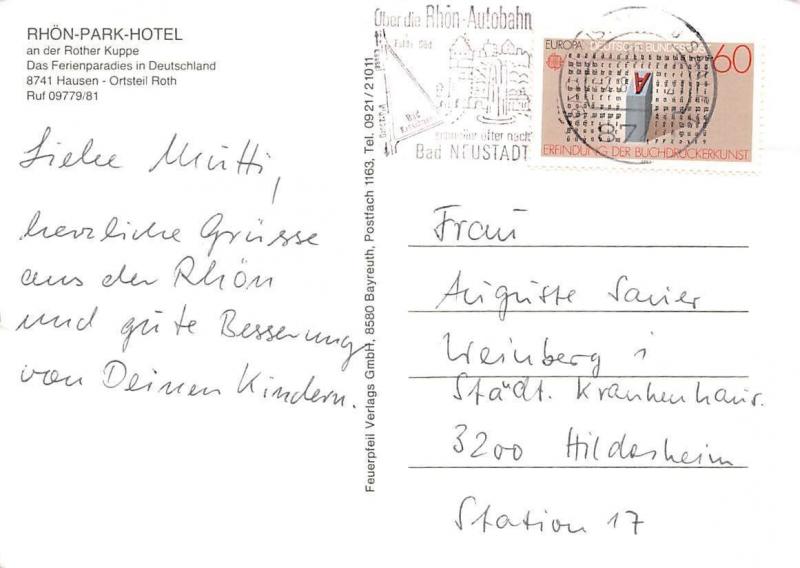 RHÖN-PARK-HOTEL
an der Rother Kuppe
Das Ferienparadies in Deutschland
8741 Hausen - Ortsteil Roth
Ruf 09779/81
Liebe Mutti,
herzliche Grüsse
aus der Rhön
und gute Besserung
von Deinen Kindern.
Feuerpfeil Verlags GmbH, 8580 Bayreuth, Postfach 1163, Tel. 0921/21011
Über die Rhön-Autobahn
öfter nach
Bad NEUSTADT
EUROPA DEUTSCHE BUNDESPOST
60
A
ERFINDUNG DER BUCHDRUCKERKUNST
87
Frau
Auguste
Weinberg 1
Städt. Krankenhaus.
3200 Hildesheim
Station 17